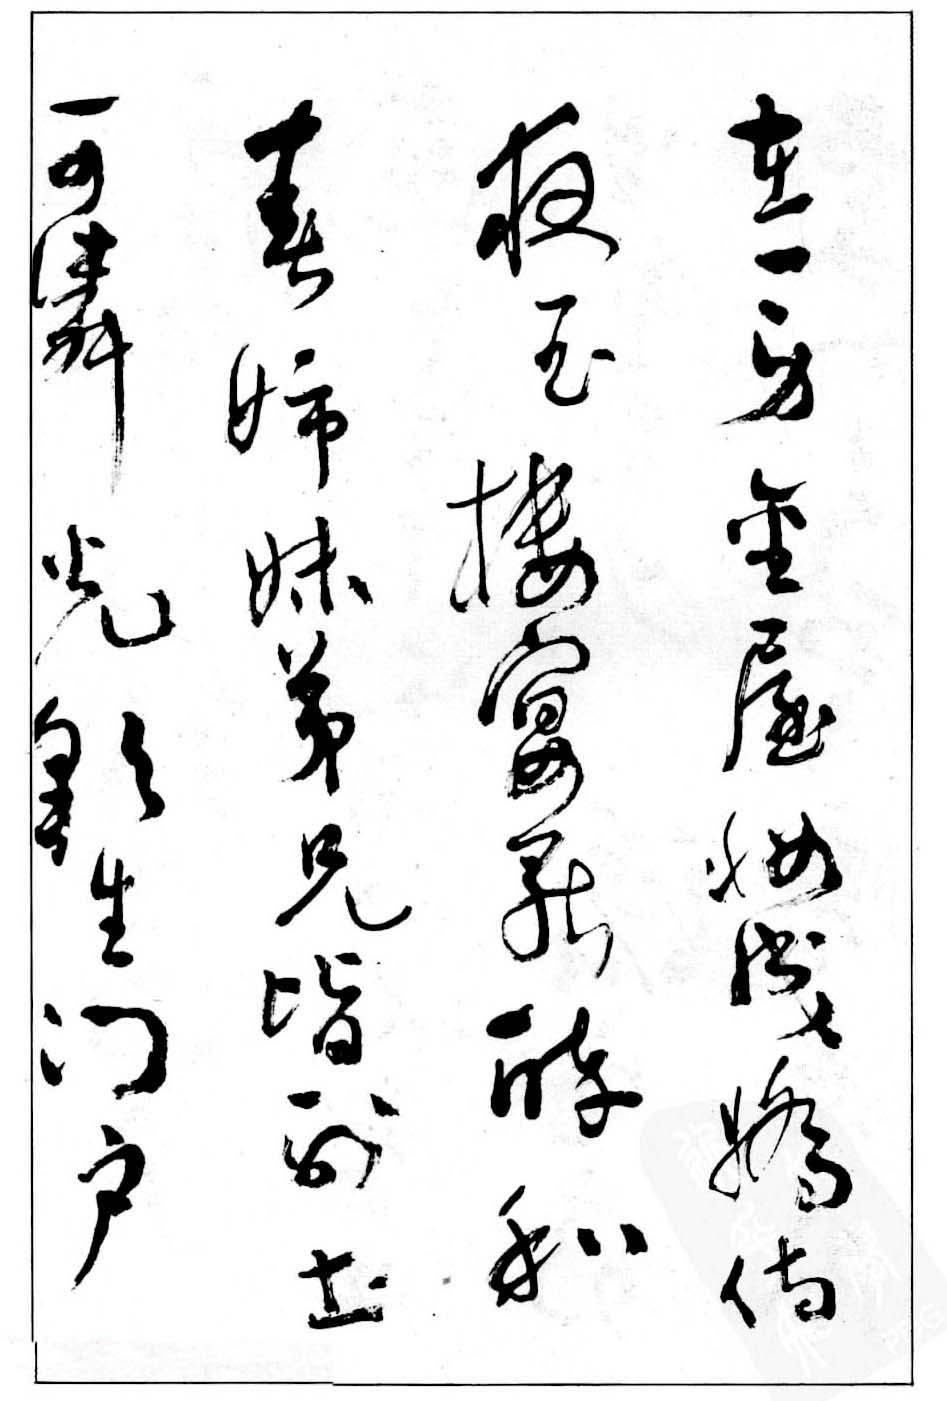 在一身金屋妝成嬌侍
夜玉樓宴罷醉和
春姊妹弟兄皆列土
可憐光彩生門戶